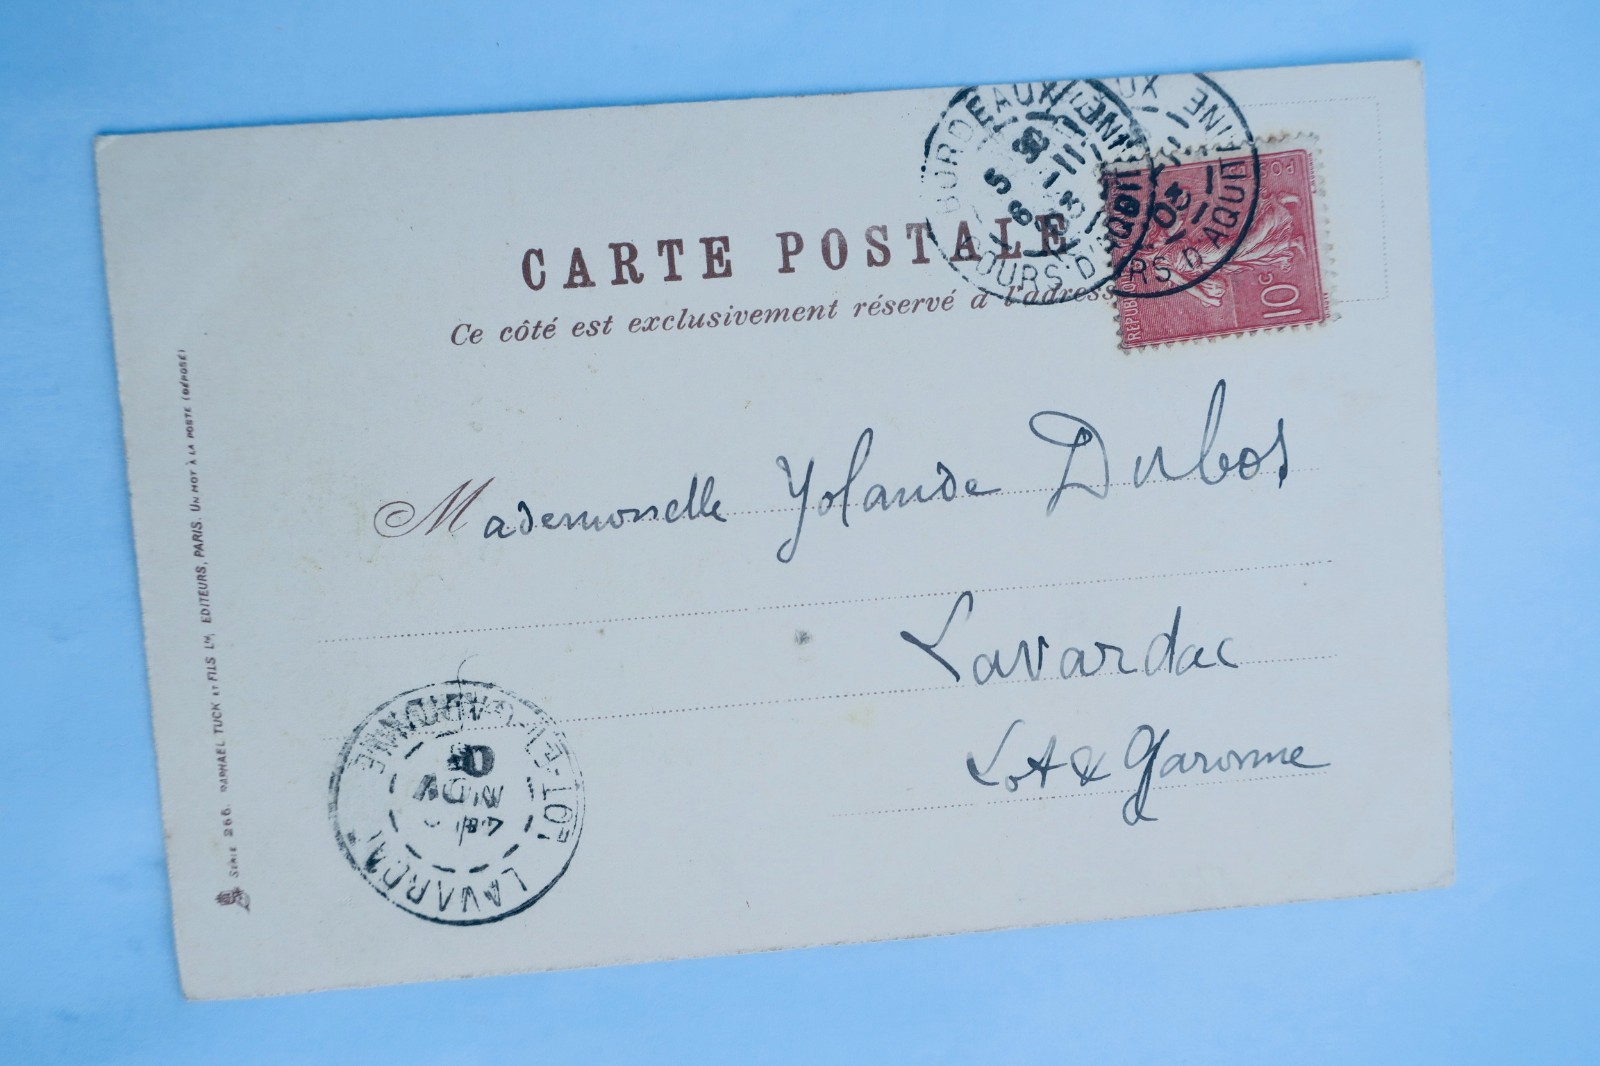 CARTE POSTALE
Ce côté est exclusivement réservé à l'adresse
BORDEAUX
COURS D'AQUITAINE
RS D'AQUITAINE
POS
10c
REPUBLIQ
Mademoiselle Yolande Dubos
Lavardac
Lot & Garonne
LAVARDAC
LOT-ET-GARONNE
SÉRIE 266. RAPHAEL TUCK ET FILS LTD, EDITEURS, PARIS. UN MOT À LA POSTE (DÉPOSÉ)